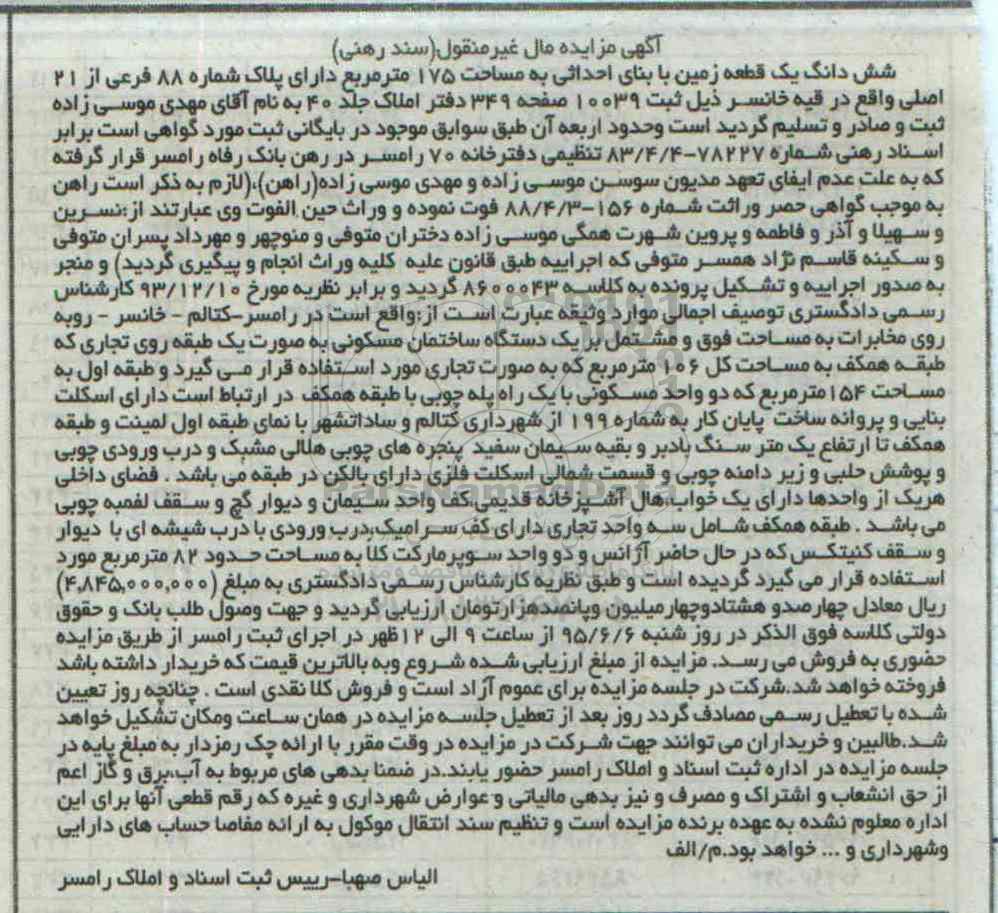 آگهی مزایده مال غیرمنقول(سند رهنی)
شش دانگ یک قطعه زمین با بنای احداثی به مساحت ۱۷۵ مترمربع دارای پلاک شماره ۸۸ فرعی از ۲۱
اصلی واقع در قیه خانسر ذیل ثبت ۱۰۰۳۹ صفحه ۳۴۹ دفتر املاک جلد ۴۰ به نام آقای مهدی موسی زاده
ثبت و صادر و تسلیم گردید است وحدود اربعه آن طبق سوابق موجود در بایگانی ثبت مورد گواهی است برابر
اسناد رهنی شماره ۷۸۲۲۷-۸۳/۴/۴ تنظیمی دفترخانه ۷۰ رامسر در رهن بانک رفاه رامسر قرار گرفته
که به علت عدم ایفای تعهد مدیون سوسن موسی زاده و مهدی موسی زاده(راهن)،(لازم به ذکر است راهن
به موجب گواهی حصر وراثت شماره ۱۵۶-۸۸/۴/۳ فوت نموده و وراث حین الفوت وی عبارتند از؛نسرین
و سهیلا و آذر و فاطمه و پروین شهرت همگی موسی زاده دختران متوفی و منوچهر و مهرداد پسران متوفی
و سکینه قاسم نژاد همسر متوفی که اجراییه طبق قانون علیه کلیه وراث انجام و پیگیری گردید) و منجر
به صدور اجراییه و تشکیل پرونده به کلاسه ۸۶۰۰۰۴۳ گردید و برابر نظریه مورخ ۹۳/۱۲/۱۰ کارشناس
رسمی دادگستری توصیف اجمالی موارد وثیقه عبارت است از؛واقع است در رامسر-کتالم - خانسر - روبه
روی مخابرات به مساحت فوق و مشتمل بر یک دستگاه ساختمان مسکونی به صورت یک طبقه روی تجاری که
طبقه همکف به مساحت کل ۱۰۶ مترمربع که به صورت تجاری مورد استفاده قرار می گیرد و طبقه اول به
مساحت ۱۵۴مترمربع که دو واحد مسکونی با یک راه پله چوبی با طبقه همکف در ارتباط است دارای اسکلت
بنایی و پروانه ساخت پایان کار به شماره ۱۹۹ از شهرداری کتالم و ساداتشهر با نمای طبقه اول لمینت و طبقه
همکف تا ارتفاع یک متر سنگ بادبر و بقیه سیمان سفید پنجره های چوبی هلالی مشبک و درب ورودی چوبی
و پوشش حلبی و زیر دامنه چوبی و قسمت شمالی اسکلت فلزی دارای بالکن در طبقه می باشد . فضای داخلی
هریک از واحدها دارای یک خواب،هال، آشپزخانه قدیمی،کف واحد سیمان و دیوار گچ و سقف لفمبه چوبی
می باشد . طبقه همکف شامل سه واحد تجاری دارای کف سرامیک،درب ورودی با درب شیشه ای با دیوار
و سقف کنیتکس که در حال حاضر آژانس و دو واحد سوپرمارکت کلا به مساحت حدود ۸۲ مترمربع مورد
استفاده قرار می گیرد گردیده است و طبق نظریه کارشناس رسمی دادگستری به مبلغ (۴,۸۴۵,۰۰۰,۰۰۰)
ریال معادل چهارصدو هشتادوچهارمیلیون وپانصدهزارتومان ارزیابی گردید و جهت وصول طلب بانک و حقوق
دولتی کلاسه فوق الذکر در روز شنبه ۹۵/۶/۶ از ساعت ۹ الی ۱۲ظهر در اجرای ثبت رامسر از طریق مزایده
حضوری به فروش می رسد. مزایده از مبلغ ارزیابی شده شروع وبه بالاترین قیمت که خریدار داشته باشد
فروخته خواهد شد.شرکت در جلسه مزایده برای عموم آزاد است و فروش کلا نقدی است . چنانچه روز تعیین
شده با تعطیل رسمی مصادف گردد روز بعد از تعطیل جلسه مزایده در همان ساعت ومکان تشکیل خواهد
شد.طالبین و خریداران می توانند جهت شرکت در مزایده در وقت مقرر با ارائه چک رمزدار به مبلغ پایه در
جلسه مزایده در اداره ثبت اسناد و املاک رامسر حضور یابند.در ضمنا بدهی های مربوط به آب،برق و گاز اعم
از حق انشعاب و اشتراک و مصرف و نیز بدهی مالیاتی و عوارض شهرداری و غیره که رقم قطعی آنها برای این
اداره معلوم نشده به عهده برنده مزایده است و تنظیم سند انتقال موکول به ارائه مفاصا حساب های دارایی
وشهرداری و ... خواهد بود.م/الف
الیاس صهبا-رییس ثبت اسناد و املاک رامسر